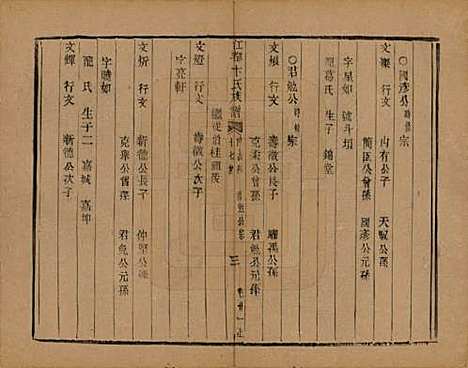 ○國彥公 宗
文樂 行文 內有公子 天賦公孫
簡臣公曾孫 國彥公元孫
字星如 號斗垣
龍葛氏 生子 錦堂
○君勉公 宗
文煩 行文 壽徵公長子 耀禹公孫
克秉公曾孫 君勉公元孫
江都卞氏族譜 三
繼配
文燈 行文 壽徵公次子
字亮軒
文炘 行文 新德公長子 仲堅公孫
克秉公曾孫 君勉公元孫
字曉如
龍氏 生子二 嘉城 嘉坤
文輝 行文 新德公次子